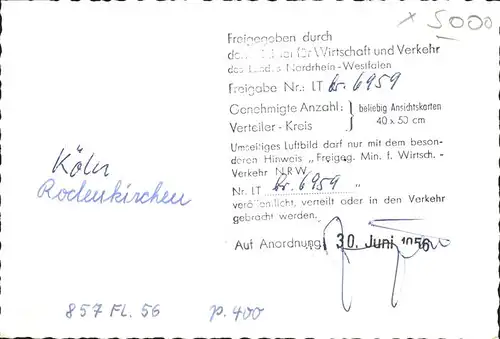 x 5000
Freigegeben durch
für Wirtschaft und Verkehr
des Landes Nordrhein-Westfalen
Freigabe Nr.: LT br. 6959
Genehmigte Anzahl: } beliebig Ansichtskarten
Verteiler-Kreis } 40 x 50 cm
Umseitiges Luftbild darf nur mit dem beson-
deren Hinweis „Freigeg. Min. f. Wirtsch. -
Verkehr N.R.W.
Nr. LT br. 6959 "
veröffentlicht, verteilt oder in den Verkehr
gebracht werden.
Auf Anordnung 30. Juni 1956
Köln
Rodenkirchen
857 FL. 56 p. 400